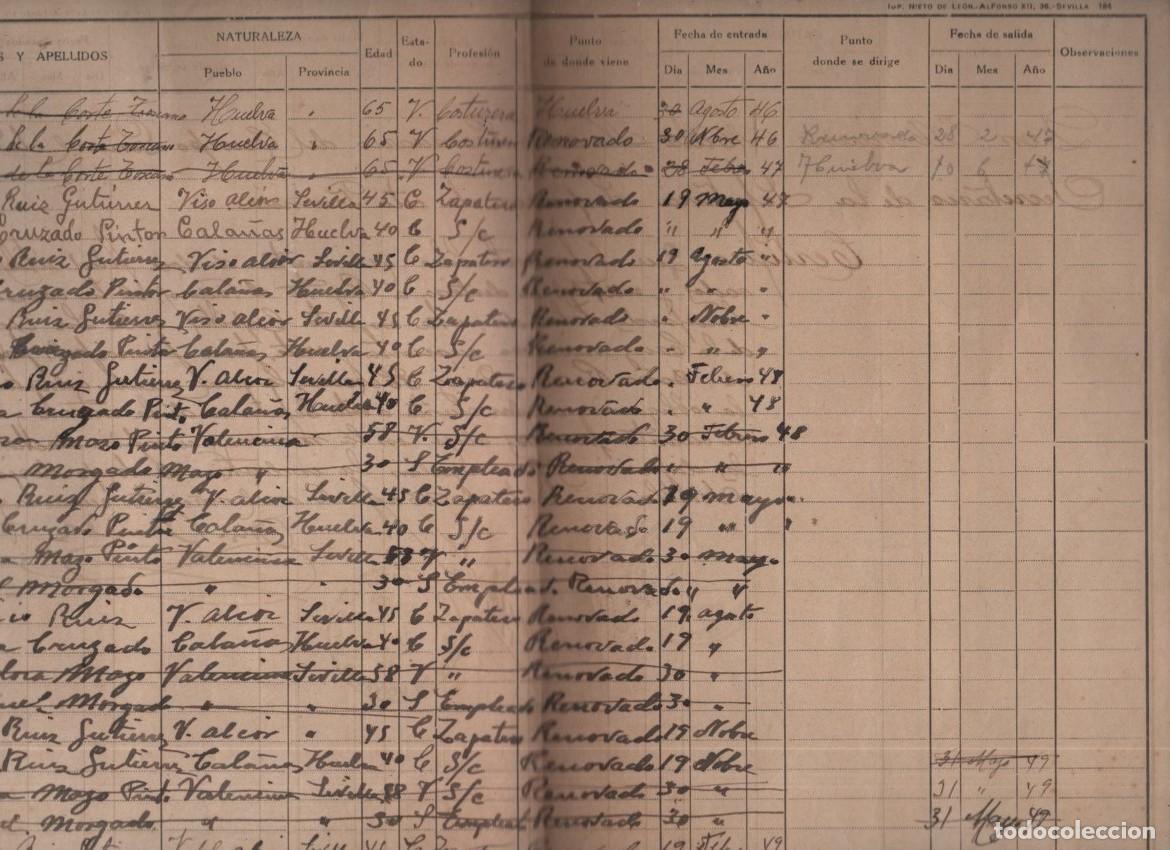 IMP. NIETO DE LEON.-ALFONSO XII, 36.-SEVILLA 184
S Y APELLIDOS NATURALEZA Edad Esta-do Profesión Punto de donde viene Fecha de entrada Punto donde se dirige Fecha de salida Observaciones
Pueblo Provincia Dia Mes Año Dia Mes Año
de la Corte Toscano Huelva " 65 V. Costurera Huelva 30 Agosto 46
de la Corte Toscano Huelva " 65 V Costurera Renovado 30 Nbre 46 Renovado 28 2 47
de la Corte Toscano Huelva " 65 V. Costurera Renovado 28 Febro 47 Huelva 10 6 47
Ruiz Gutiérrez Viso alcor Sevilla 45 C Zapatero Renovado 19 Mayo 47
Cruzado Pintor Calañas Huelva 40 C S/c Renovado " " "
Ruiz Gutierrez Viso alcor Sevilla 45 C Zapatero Renovado 19 Agosto "
Cruzado Pintor Calañas Huelva 40 C S/c Renovado " " "
Ruiz Gutierrez Viso alcor Sevilla 45 C Zapatero Renovado " Nobre "
Cruzado Pinto Calañas Huelva 40 C S/c Renovado " " "
Ruiz Gutierrez V. alcor Sevilla 45 C Zapatero Renovado " Febrero 48
Cruzado Pinto Calañas Huelva 40 C S/c Renovado " " 48
Mazo Pinto Valencina " 58 V. S/c Renovado 30 Febrero 48
Morgado Mazo " 30 S Empleado Renovado " " "
Ruiz Gutierrez V. alcor Sevilla 45 C Zapatero Renovado 19 mayo "
Cruzado Pinto Calañas Huelva 40 C S/c Renovado 19 " "
Mazo Pinto Valencina Sevilla 58 V " Renovado 30 Mayo
Morgado " 30 S Emplead. Renovado " "
Ruiz V. alcor Sevilla 45 C Zapatero Renovado 19 agosto
Cruzado Calañas Huelva 40 C S/c Renovado 19 "
Mazo Valencina Sevilla 58 V " Renovado 30 "
Morgado " " 30 S Empleado Renovado 30 "
Ruiz Gutierrez V. alcor " 45 C Zapatero Renovado 19 Nobre
Ruiz Gutierrez Calañas Huelva 40 C S/c Renovado 19 Nobre 31 Mayo 49
Mazo Pinto Valencina Sevilla 58 V S/c Renovado 30 " 31 " 49
Morgado " " 30 S Empleat Renovado 30 " 31 Mayo 49
19 Feb 49
todocoleccion